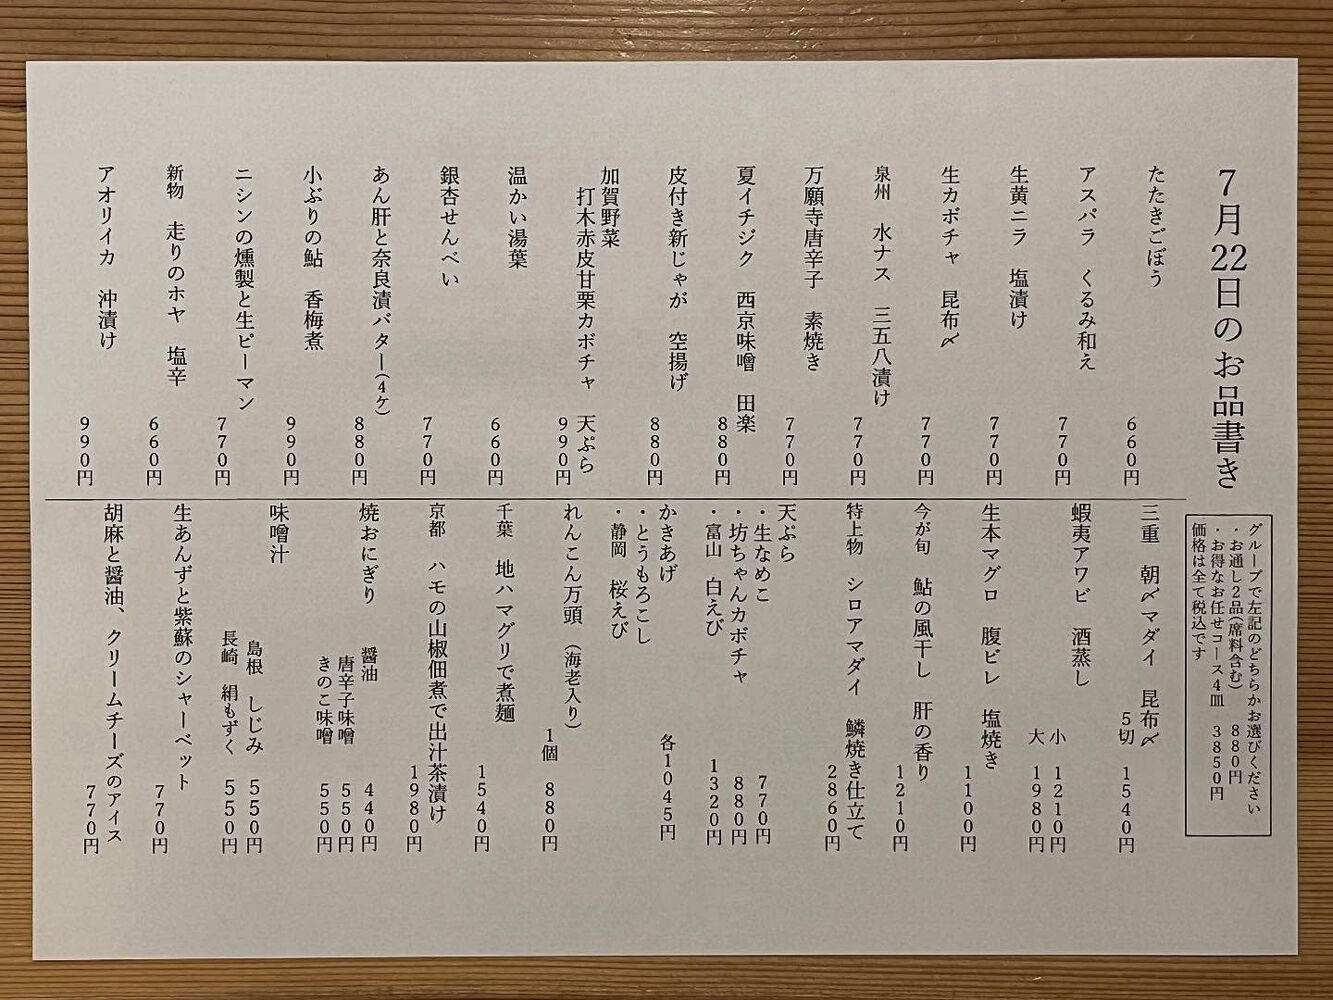 7月22日のお品書き
たたきごぼう
660円
アスパラ くるみ和え
770円
生黄ニラ 塩漬け
770円
生カボチャ 昆布〆
770円
泉州 水ナス 三五八漬け
770円
万願寺唐辛子 素焼き
770円
夏イチジク 西京味噌 田楽
880円
皮付き新じゃが 空揚げ
880円
加賀野菜
打木赤皮甘栗カボチャ 天ぷら
990円
温かい湯葉
660円
銀杏せんべい
770円
あん肝と奈良漬バター(4ケ)
880円
小ぶりの鮎 香梅煮
990円
ニシンの燻製と生ピーマン
770円
新物 走りのホヤ 塩辛
660円
アオリイカ 沖漬け
990円
グループで左記のどちらかお選びください
・お通し2品(席料含む) 880円
・お得なお任せコース4皿 3850円
価格は全て税込です
三重 朝〆マダイ 昆布〆
5切 1540円
蝦夷アワビ 酒蒸し
小 1210円
大 1980円
生本マグロ 腹ビレ 塩焼き
1100円
今が旬 鮎の風干し 肝の香り
1210円
特上物 シロアマダイ 鱗焼き仕立て
2860円
天ぷら
・生なめこ 770円
・坊ちゃんカボチャ 880円
・富山 白えび 1320円
かきあげ 各1045円
・とうもろこし
・静岡 桜えび
れんこん万頭 (海老入り)
1個 880円
千葉 地ハマグリで煮麺
1540円
京都 ハモの山椒佃煮で出汁茶漬け
1980円
焼おにぎり 醤油 440円
唐辛子味噌 550円
きのこ味噌 550円
味噌汁
島根 しじみ 550円
長崎 絹もずく 550円
生あんずと紫蘇のシャーベット
770円
胡麻と醤油、クリームチーズのアイス
770円